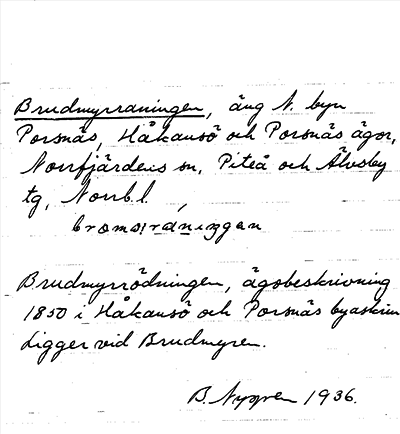 Brudmyrraningen, äng N. byn
Porsnäs, Håkansö och Porsnäs ägor,
Norrfjärdens sn, Piteå och Älvsby
tg, Norrb.l.
Brudmyrrödningen, ägobeskrivning
1850 i Håkansö och Porsnäs byaskrin
Ligger vid Brudmyren.
B. Nygren 1936.